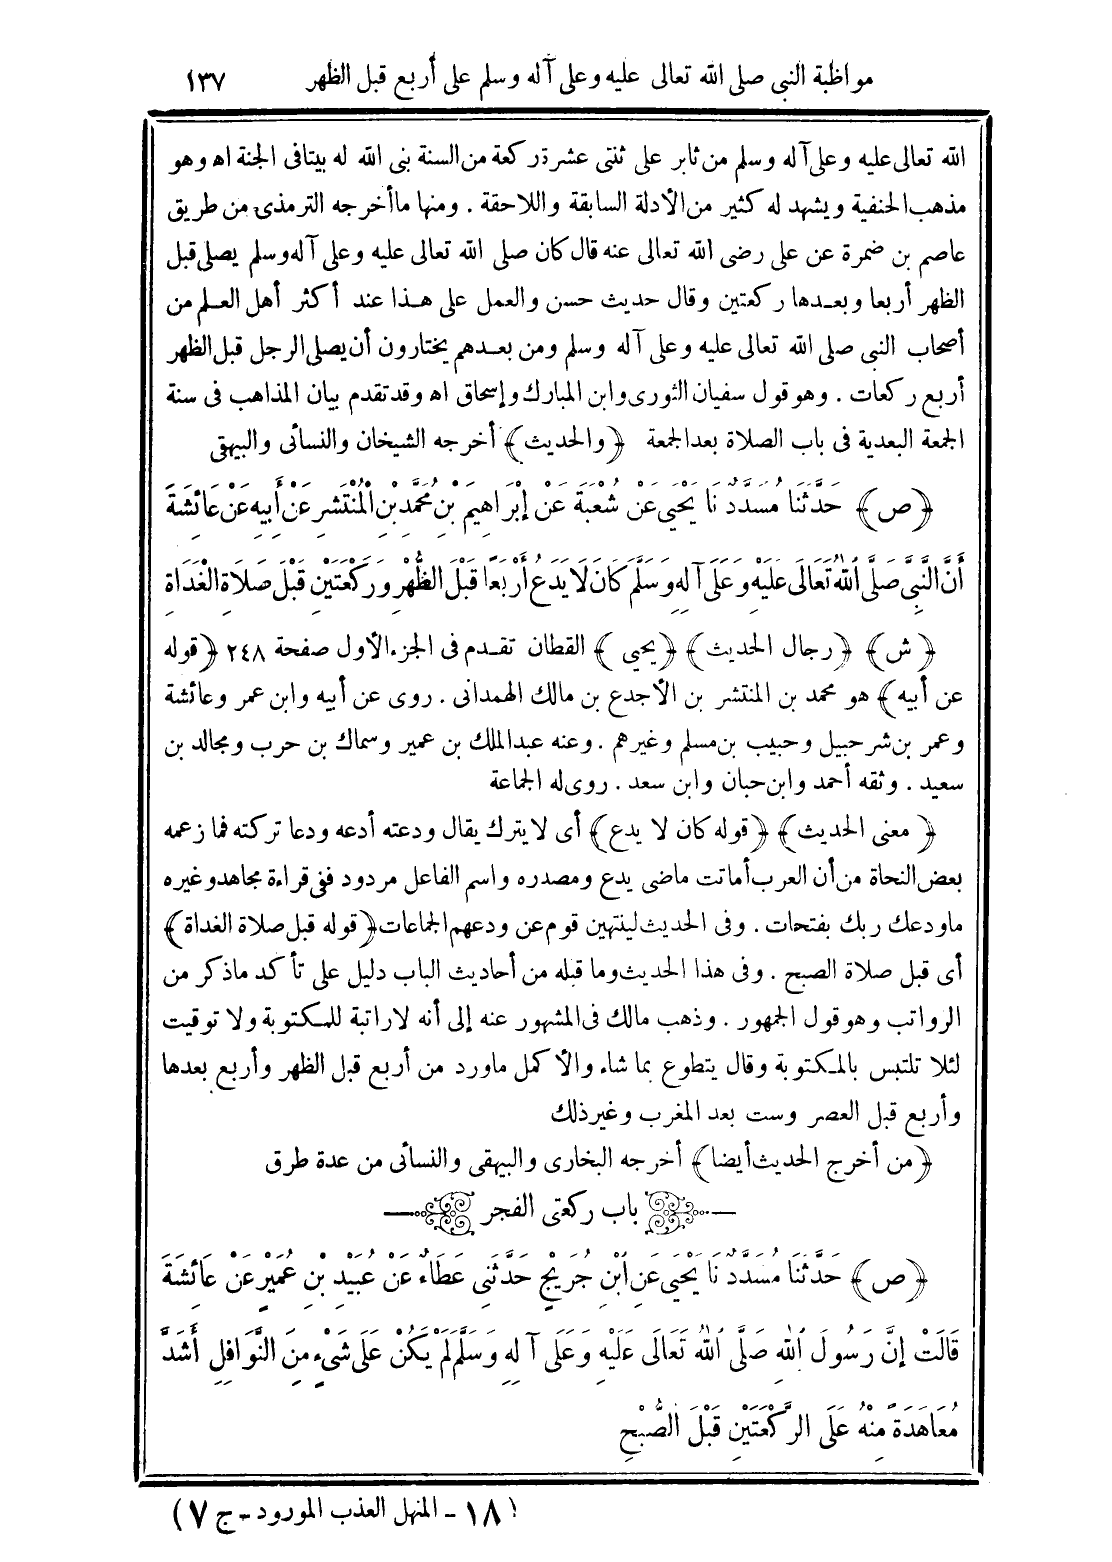 مواظبة النبى صلى الله تعالى عليه وعلى آله وسلم على أربع قبل الظهر ١٣٧
الله تعالى عليه وعلى آله وسلم من ثابر على ثنتى عشرة ركعة من السنة بنى الله له بيتا فى الجنة اه وهو
مذهب الحنفية ويشهد له كثير من الأدلة السابقة واللاحقة . ومنها ما أخرجه الترمذى من طريق
عاصم بن ضمرة عن على رضى الله تعالى عنه قال كان صلى الله تعالى عليه وعلى آله وسلم يصلى قبل
الظهر أربعا وبعدها ركعتين وقال حديث حسن والعمل على هذا عند أكثر أهل العلم من
أصحاب النبى صلى الله تعالى عليه وعلى آله وسلم ومن بعدهم يختارون أن يصلى الرجل قبل الظهر
أربع ركعات . وهو قول سفيان الثورى وابن المبارك وإسحاق اه وقد تقدم بيان المذاهب فى سنة
الجمعة البعدية فى باب الصلاة بعد الجمعة ﴿والحديث﴾ أخرجه الشيخان والنسائى والبيهقى
﴿ص﴾ حَدَّثَنَا مُسَدَّدٌ نَا يَحْيَى عَنْ شُعْبَةَ عَنْ إِبْرَاهِيمَ بْنِ مُحَمَّدِ بْنِ الْمُنْتَشِرِ عَنْ أَبِيهِ عَنْ عَائِشَةَ
أَنَّ النَّبِيَّ صَلَّى اللهُ تَعَالَى عَلَيْهِ وَعَلَى آلِهِ وَسَلَّمَ كَانَ لَا يَدَعُ أَرْبَعًا قَبْلَ الظُّهْرِ وَرَكْعَتَيْنِ قَبْلَ صَلَاةِ الْغَدَاةِ
﴿ش﴾ ﴿رجال الحديث﴾ ﴿يحيى﴾ القطان تقدم فى الجزء الأول صفحة ٢٤٨ ﴿قوله
عن أبيه﴾ هو محمد بن المنتشر بن الأجدع بن مالك الهمدانى . روى عن أبيه وابن عمر وعائشة
وعمر بن شرحبيل وحبيب بن مسلم وغيرهم . وعنه عبد الملك بن عمير وسماك بن حرب ومجالد بن
سعيد . وثقه أحمد وابن حبان وابن سعد . روى له الجماعة
﴿معنى الحديث﴾ ﴿قوله كان لا يدع﴾ أى لا يترك يقال ودعته أدعه ودعا تركته فما زعمه
بعض النحاة من أن العرب أماتت ماضى يدع ومصدره واسم الفاعل مردود ففى قراءة مجاهد وغيره
ما ودعك ربك بفتحات . وفى الحديث لينتهين قوم عن ودعهم الجماعات ﴿قوله قبل صلاة الغداة﴾
أى قبل صلاة الصبح . وفى هذا الحديث وما قبله من أحاديث الباب دليل على تأكد ما ذكر من
الرواتب وهو قول الجمهور . وذهب مالك فى المشهور عنه إلى أنه لا راتبة للمكتوبة ولا توقيت
لئلا تلتبس بالمكتوبة وقال يتطوع بما شاء والأكمل ما ورد من أربع قبل الظهر وأربع بعدها
وأربع قبل العصر وست بعد المغرب وغير ذلك
﴿من أخرج الحديث أيضا﴾ أخرجه البخارى والبيهقى والنسائى من عدة طرق
باب ركعتى الفجر
﴿ص﴾ حَدَّثَنَا مُسَدَّدٌ نَا يَحْيَى عَنِ ابْنِ جُرَيْجٍ حَدَّثَنِى عَطَاءٌ عَنْ عُبَيْدِ بْنِ عُمَيْرٍ عَنْ عَائِشَةَ
قَالَتْ إِنَّ رَسُولَ اللهِ صَلَّى اللهُ تَعَالَى عَلَيْهِ وَعَلَى آلِهِ وَسَلَّمَ لَمْ يَكُنْ عَلَى شَيْءٍ مِنَ النَّوَافِلِ أَشَدَّ
مُعَاهَدَةً مِنْهُ عَلَى الرَّكْعَتَيْنِ قَبْلَ الصُّبْحِ
(١٨ - المنهل العذب المورود - ج ٧)